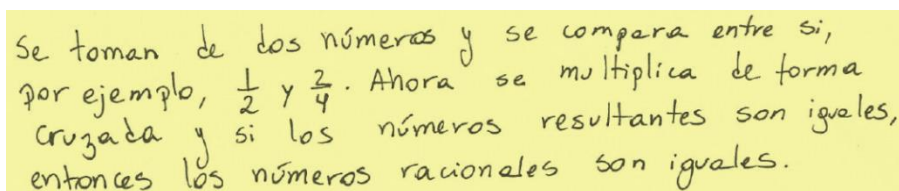 Se toman de dos números y se compara entre si,
por ejemplo, 1/2 y 2/4. Ahora se multiplica de forma
cruzada y si los números resultantes son iguales,
entonces los números racionales son iguales.